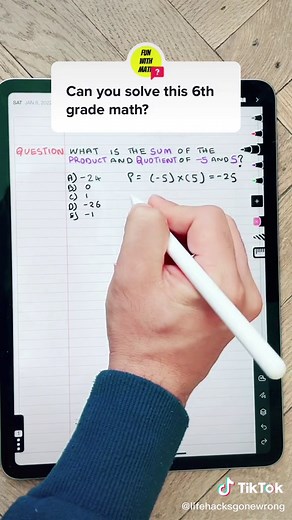 FUN
WITH
MATH
?
Can you solve this 6th
grade math?
QUESTION: WHAT IS THE SUM OF THE
PRODUCT AND QUOTIENT OF -5 AND 5?
A) -24
B) 0
C) 1
D) -26
E) -1
P = (-5) × (5) = -25
TikTok
@lifehacksgonewrong